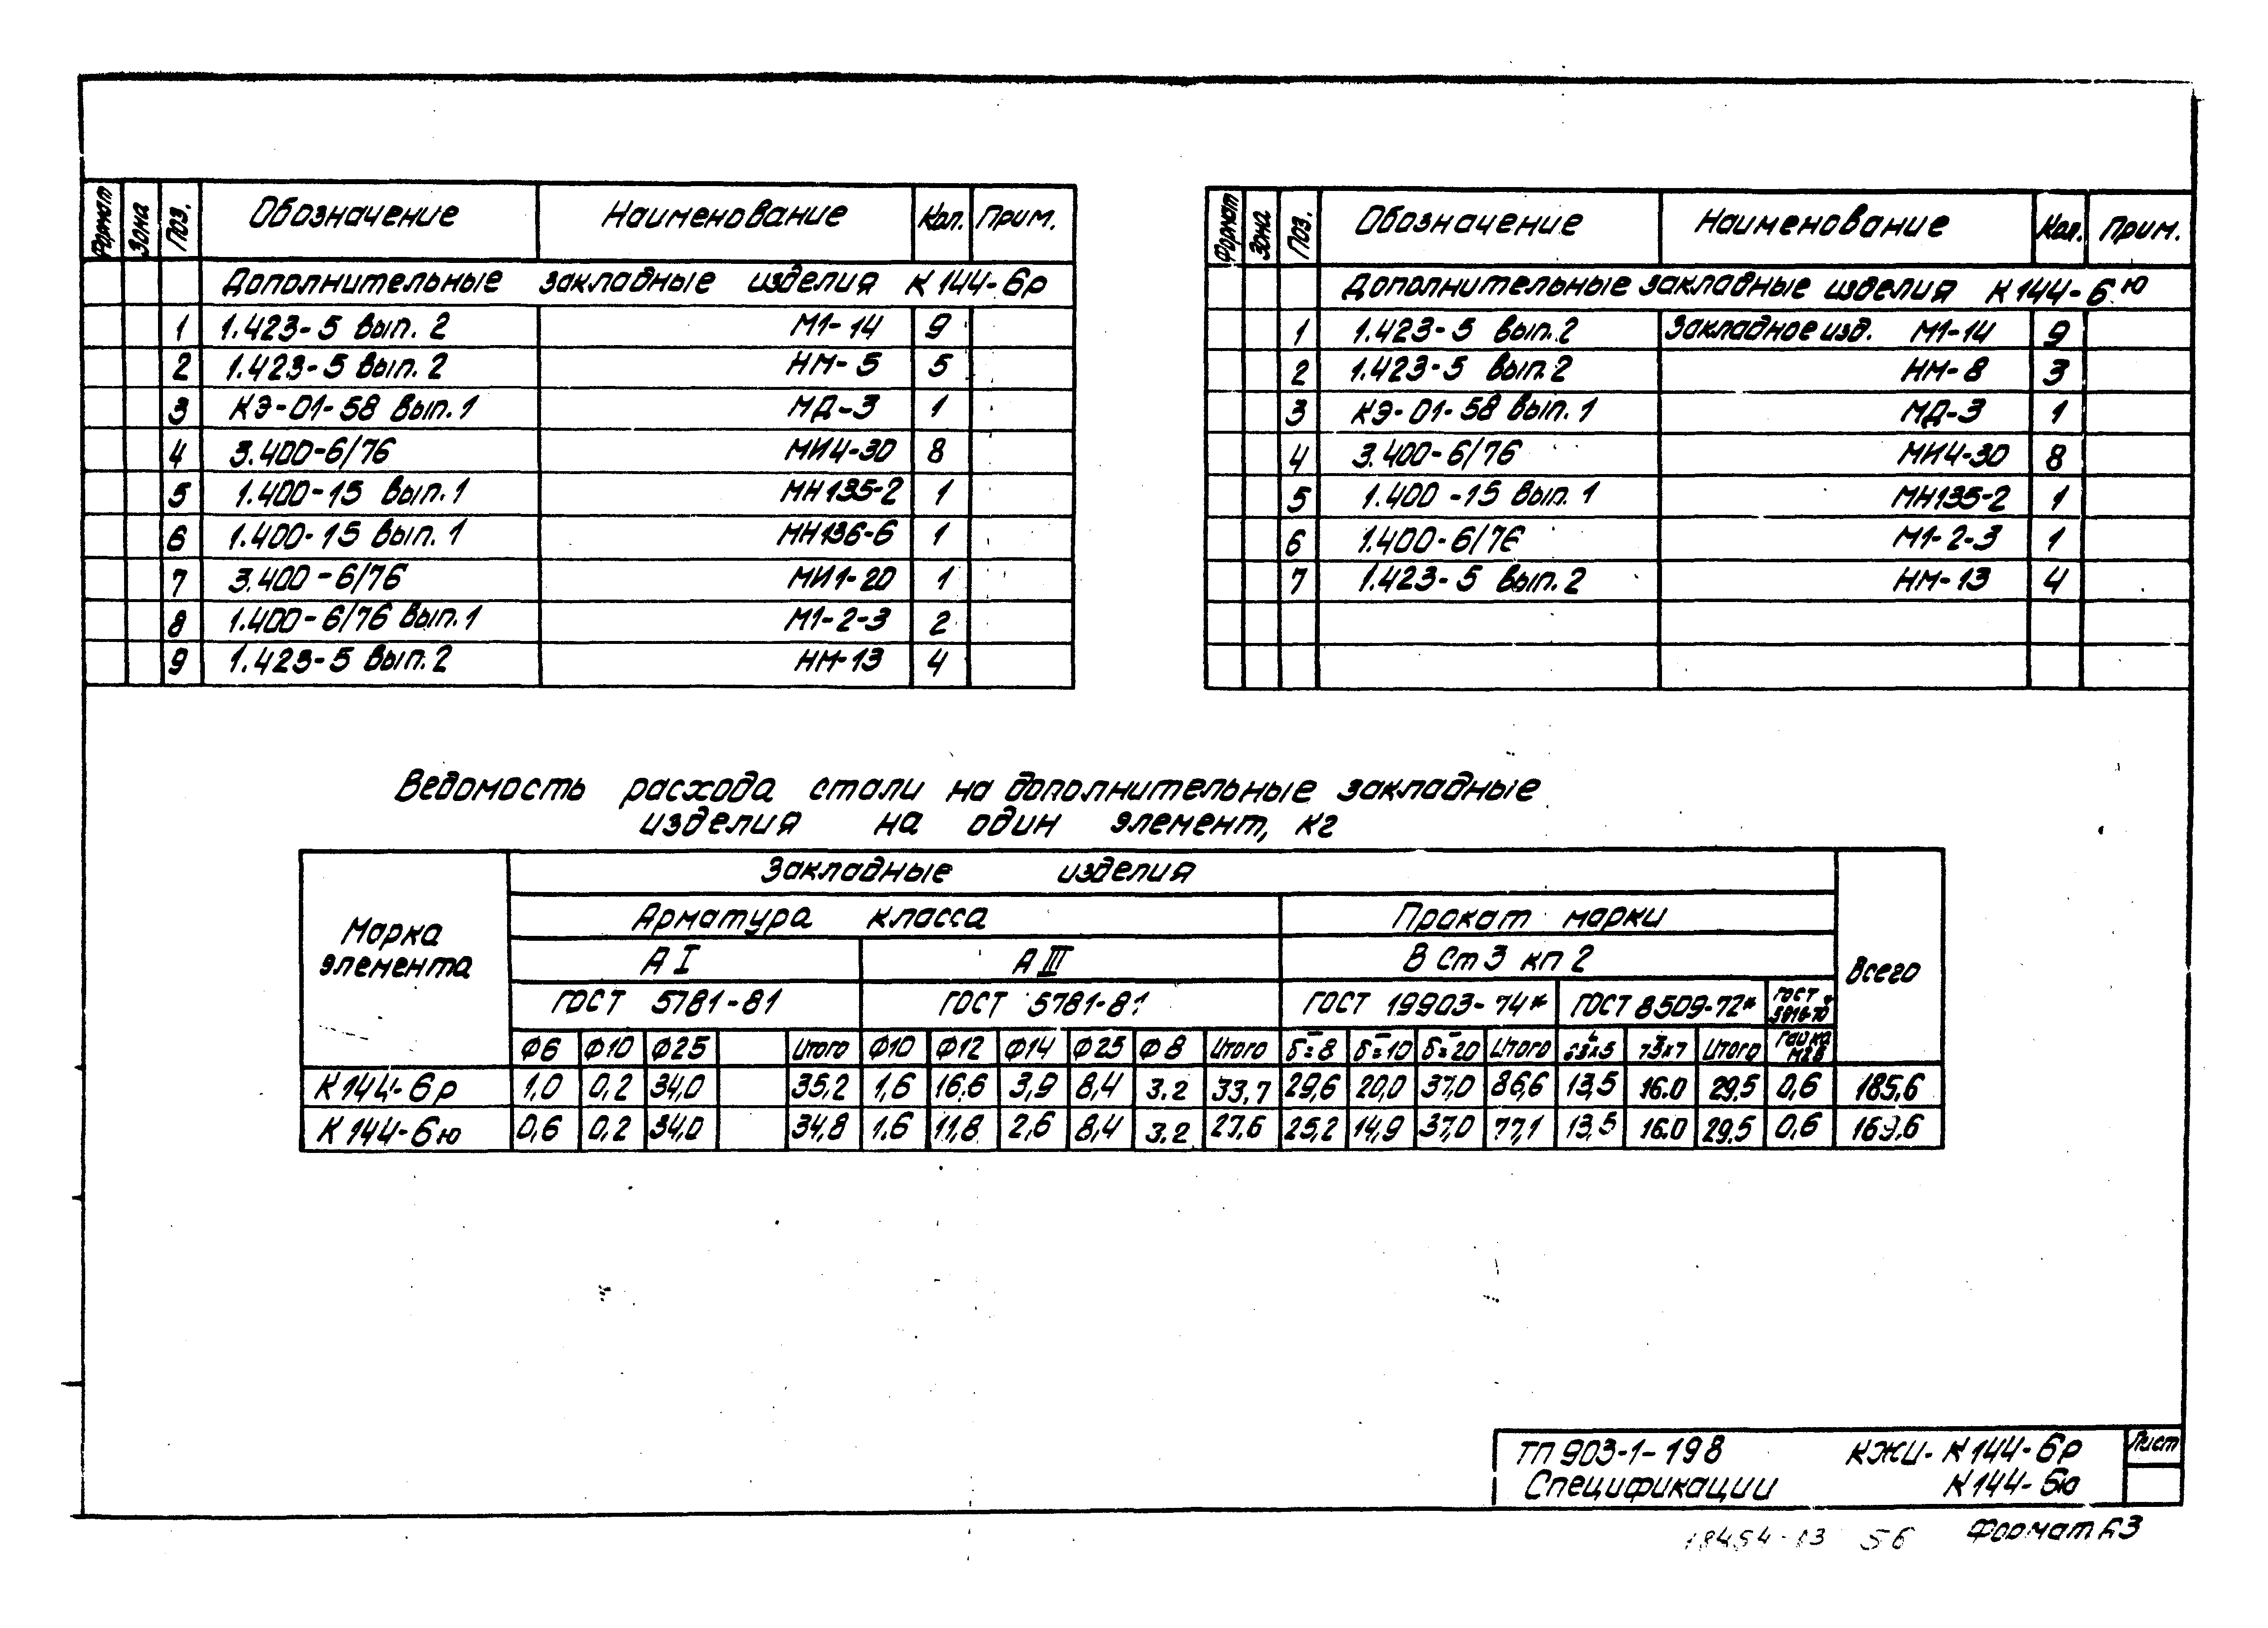 Формат Зона Поз. Обозначение Наименование Кол. Прим.
Дополнительные закладные изделия К144-6р
1 1.423-5 вып. 2 М1-14 9
2 1.423-5 вып. 2 НМ-5 5
3 КЭ-01-58 вып. 1 МД-3 1
4 3.400-6/76 МИ4-30 8
5 1.400-15 вып. 1 МН135-2 1
6 1.400-15 вып. 1 МН136-6 1
7 3.400-6/76 МИ1-20 1
8 1.400-6/76 вып. 1 М1-2-3 2
9 1.423-5 вып. 2 НМ-13 4
Формат Зона Поз. Обозначение Наименование Кол. Прим.
Дополнительные закладные изделия К144-6ю
1 1.423-5 вып. 2 Закладное изд. М1-14 9
2 1.423-5 вып. 2 НМ-8 3
3 КЭ-01-58 вып. 1 МД-3 1
4 3.400-6/76 МИ4-30 8
5 1.400-15 вып. 1 МН135-2 1
6 1.400-6/76 М1-2-3 1
7 1.423-5 вып. 2 НМ-13 4
Ведомость расхода стали на дополнительные закладные
изделия на один элемент, кг
Марка элемента Закладные изделия Всего
Арматура класса Прокат марки
А I А III В Ст 3 кп 2
ГОСТ 5781-81 ГОСТ 5781-81 ГОСТ 19903-74* ГОСТ 8509-72* ГОСТ
Ф6 Ф10 Ф25 Итого Ф10 Ф12 Ф14 Ф25 Ф8 Итого δ=8 δ=10 δ=20 Итого 63х5 75х7 Итого Гайка
К144-6р 1,0 0,2 34,0 35,2 1,6 16,6 3,9 8,4 3.2 33,7 29,6 20,0 37,0 86,6 13,5 16.0 29,5 0,6 185,6
К144-6ю 0,6 0,2 34,0 34,8 1,6 11,8 2,6 8,4 3.2 27,6 25,2 14,9 37,0 77,1 13,5 16.0 29,5 0,6 169,6
ТП 903-1-198 КЖИ-К144-6р Лист
Спецификации К144-6ю
18454-13 56 Формат А3